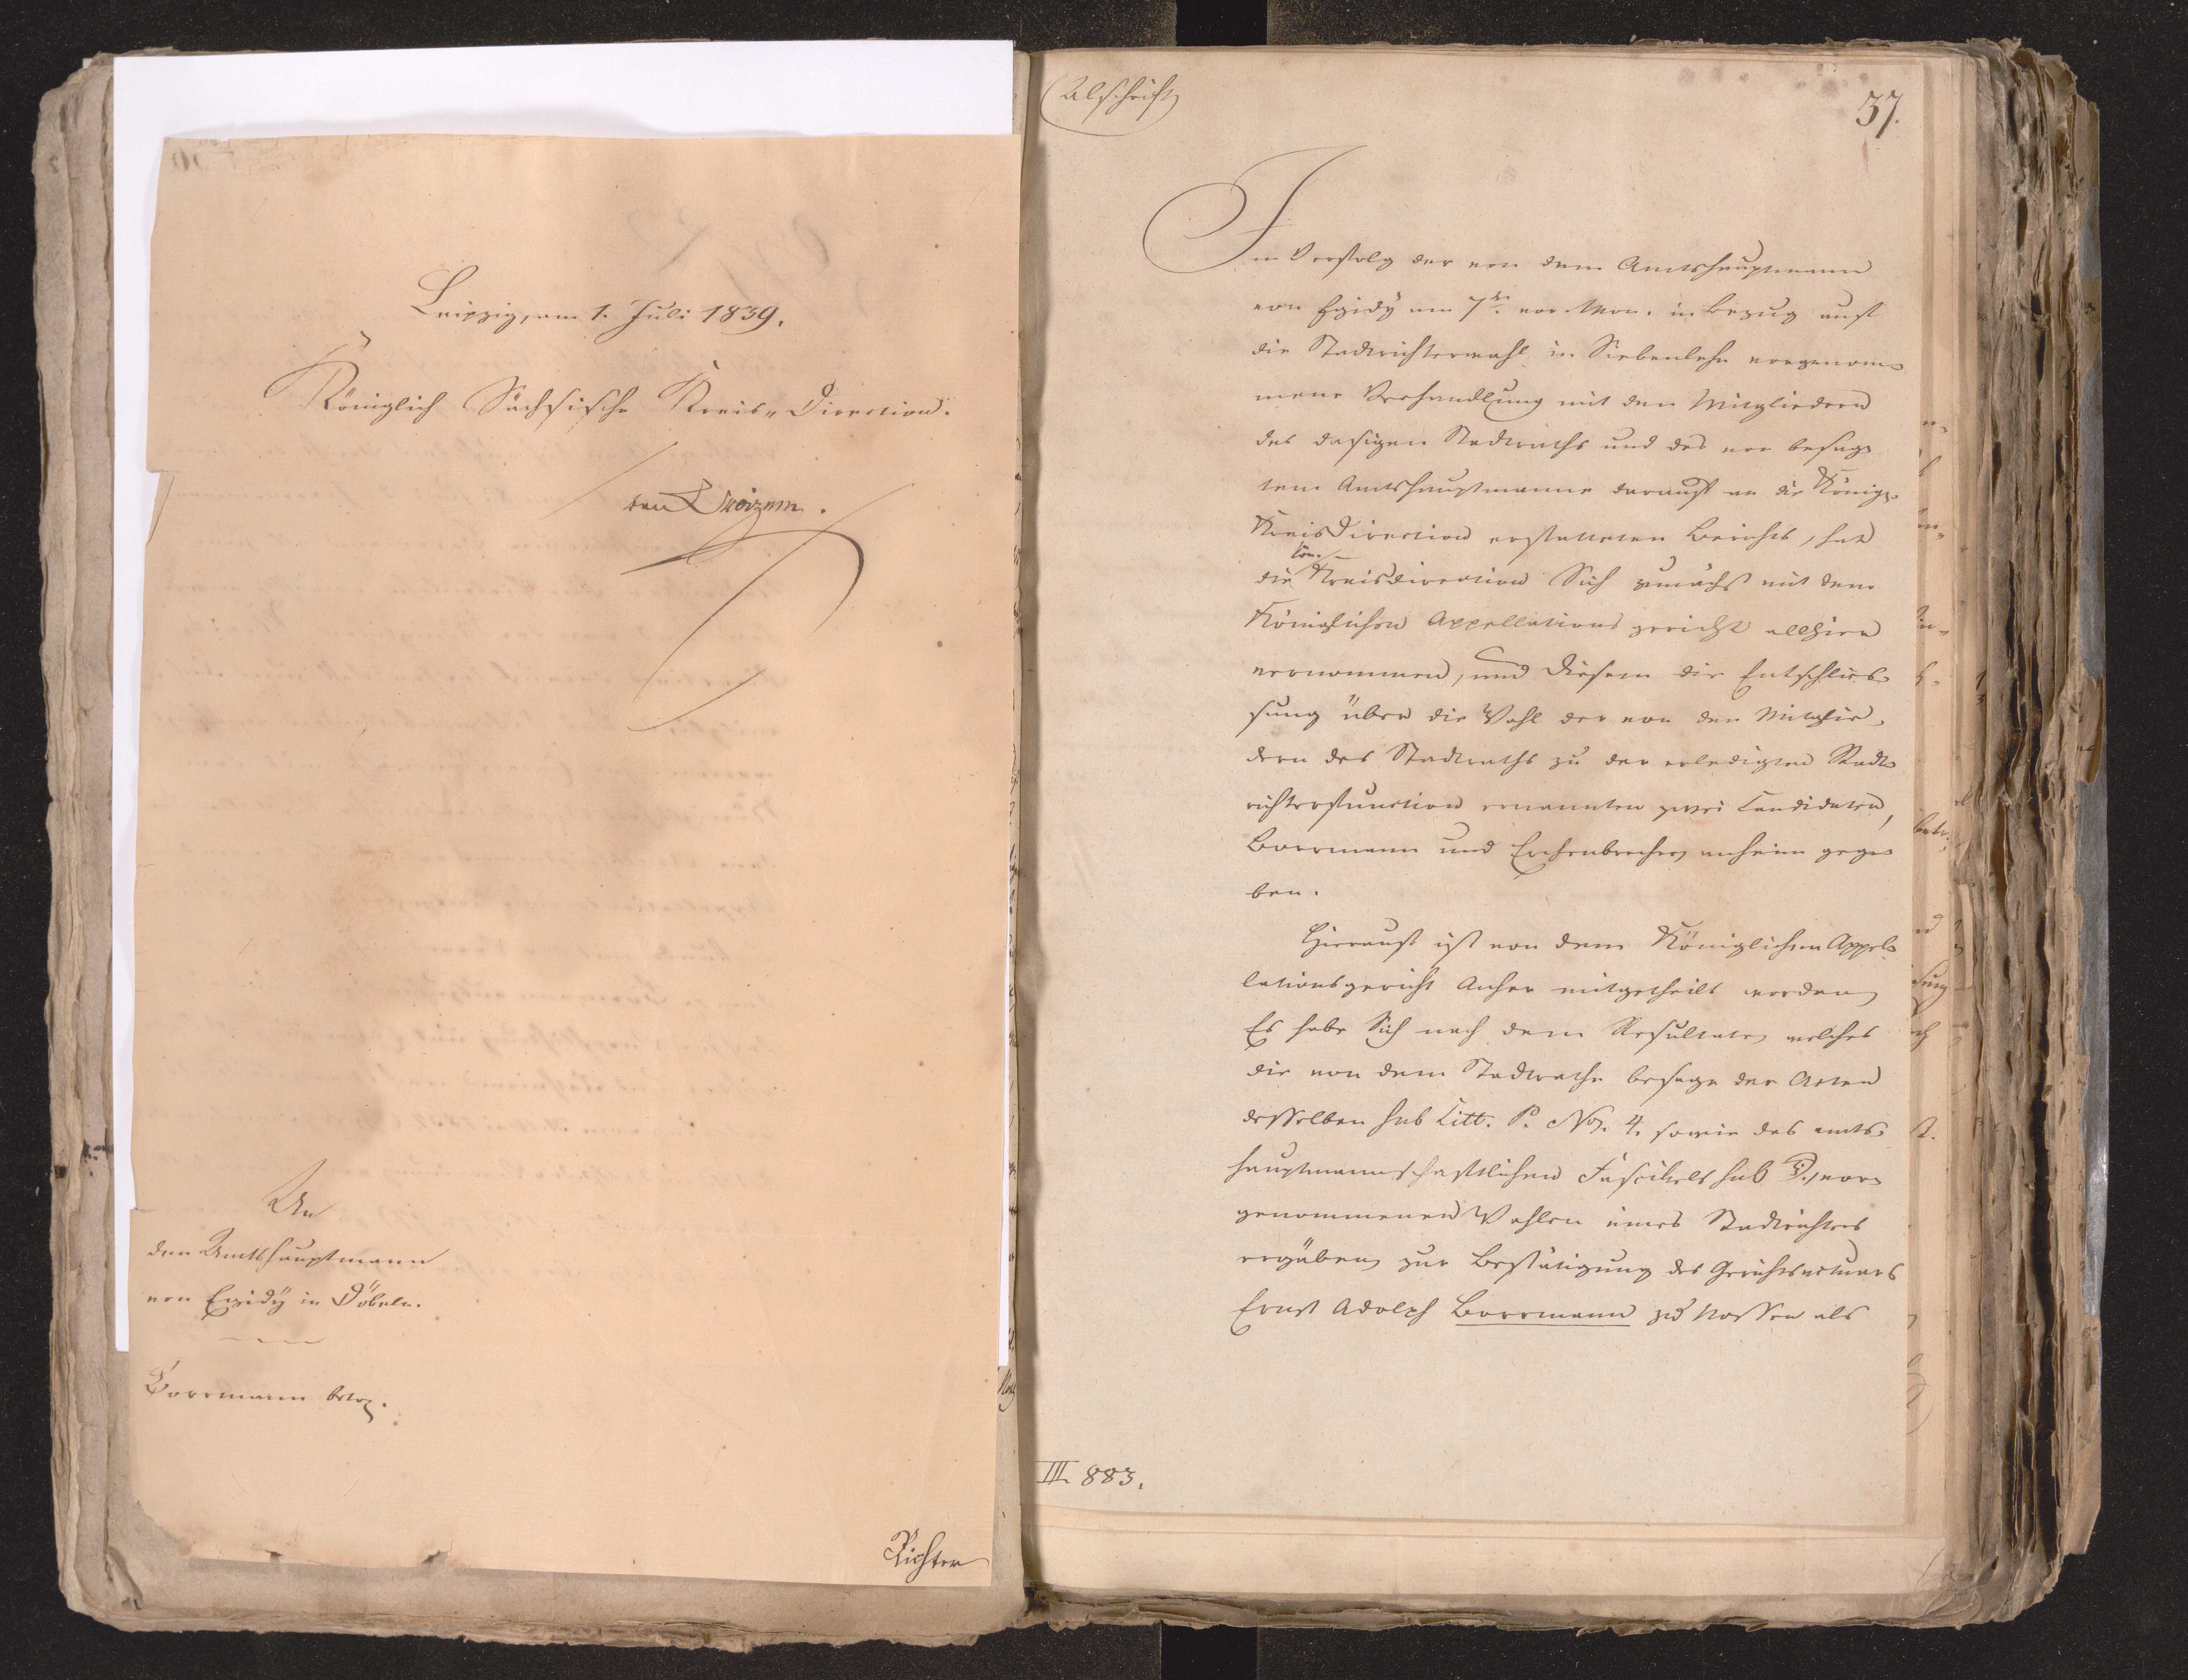 Leipzig, am 1. Juli 1839.
Königlich Sächsische Kreis-Direction.
von Broizem.
An
den Amtshauptmann
von Egidÿ in Döbeln.
Borrmann betr.
Richter
Abschrift
37.
Im Verfolg der von dem Amtshauptmann
von Egidÿ am 7ten vor. Mon. in Bezug auf
die Stadtrichterwahl in Siebenlehn vorgenom-
mene Verhandlung mit den Mitgliedern
des dasigen Stadtraths und des von besag-
tem Amtshauptmanne darauf an die Königl.
KreisDirection erstatteten Berichts, hat
die Kön. Kreisdirection Sich zunächst mit dem
Königlichen Appellationsgericht allhier
vernommen, und diesem die Entschlies-
sung über die Wahl der von den Mitglie-
dern des Stadtraths zu der erledigten Stadt-
richterfunction ernannten zwei Candidaten,
Borrmann und Erchenbrecher anheim gege-
ben.
Hierauf ist von dem Königlichen Appel-
lationsgericht Anher mitgetheilt worden,
Es habe Sich nach dem Resultate, welches
die von dem Stadtrathe besage der Acten
desselben sub Litt. P. No. 4. sowie des amts-
hauptmannschaftlichen Fascikels sub D., vor-
genommenen Wahlen eines Stadtrichters
ergäben, zur Bestätigung des Gerichtsactuars
Ernst Adolph Borrmann zu Nossen als
III. 883.